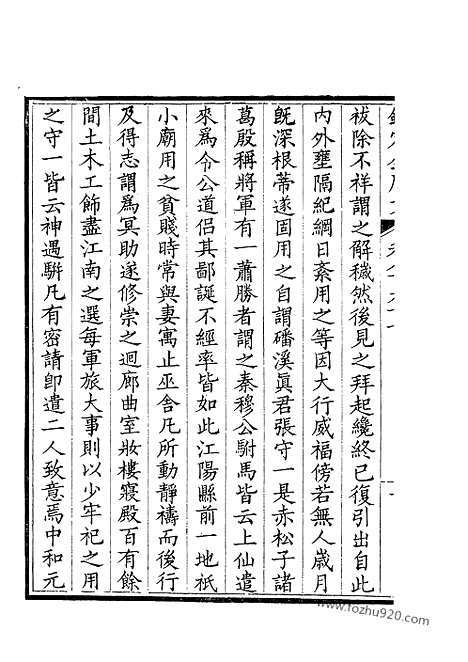 祓除不祥謂之解穢然後見之拜起纔終已復引出自此
内外壅隔紀綱日紊用之等因大行威福傍若無人歲月
旣深根蒂遂固用之自謂磻溪眞君張守一是赤松子諸
葛殷稱將軍有一蕭勝者謂之秦穆公駙馬皆云上仙遣
來爲令公道侶其鄙誕不經率皆如此江陽縣前一地祇
小廟用之貧賤時常與妻寓止巫舍凡所動靜禱而後行
及得志謂爲冥助遂修崇之迴廊曲室妝樓寢殿百有餘
間土木工飾盡江南之選每軍旅大事則以少牢祀之用
之守一皆云神遇駢凡有密請卽遣二人致意焉中和元
www.fozhu920.com